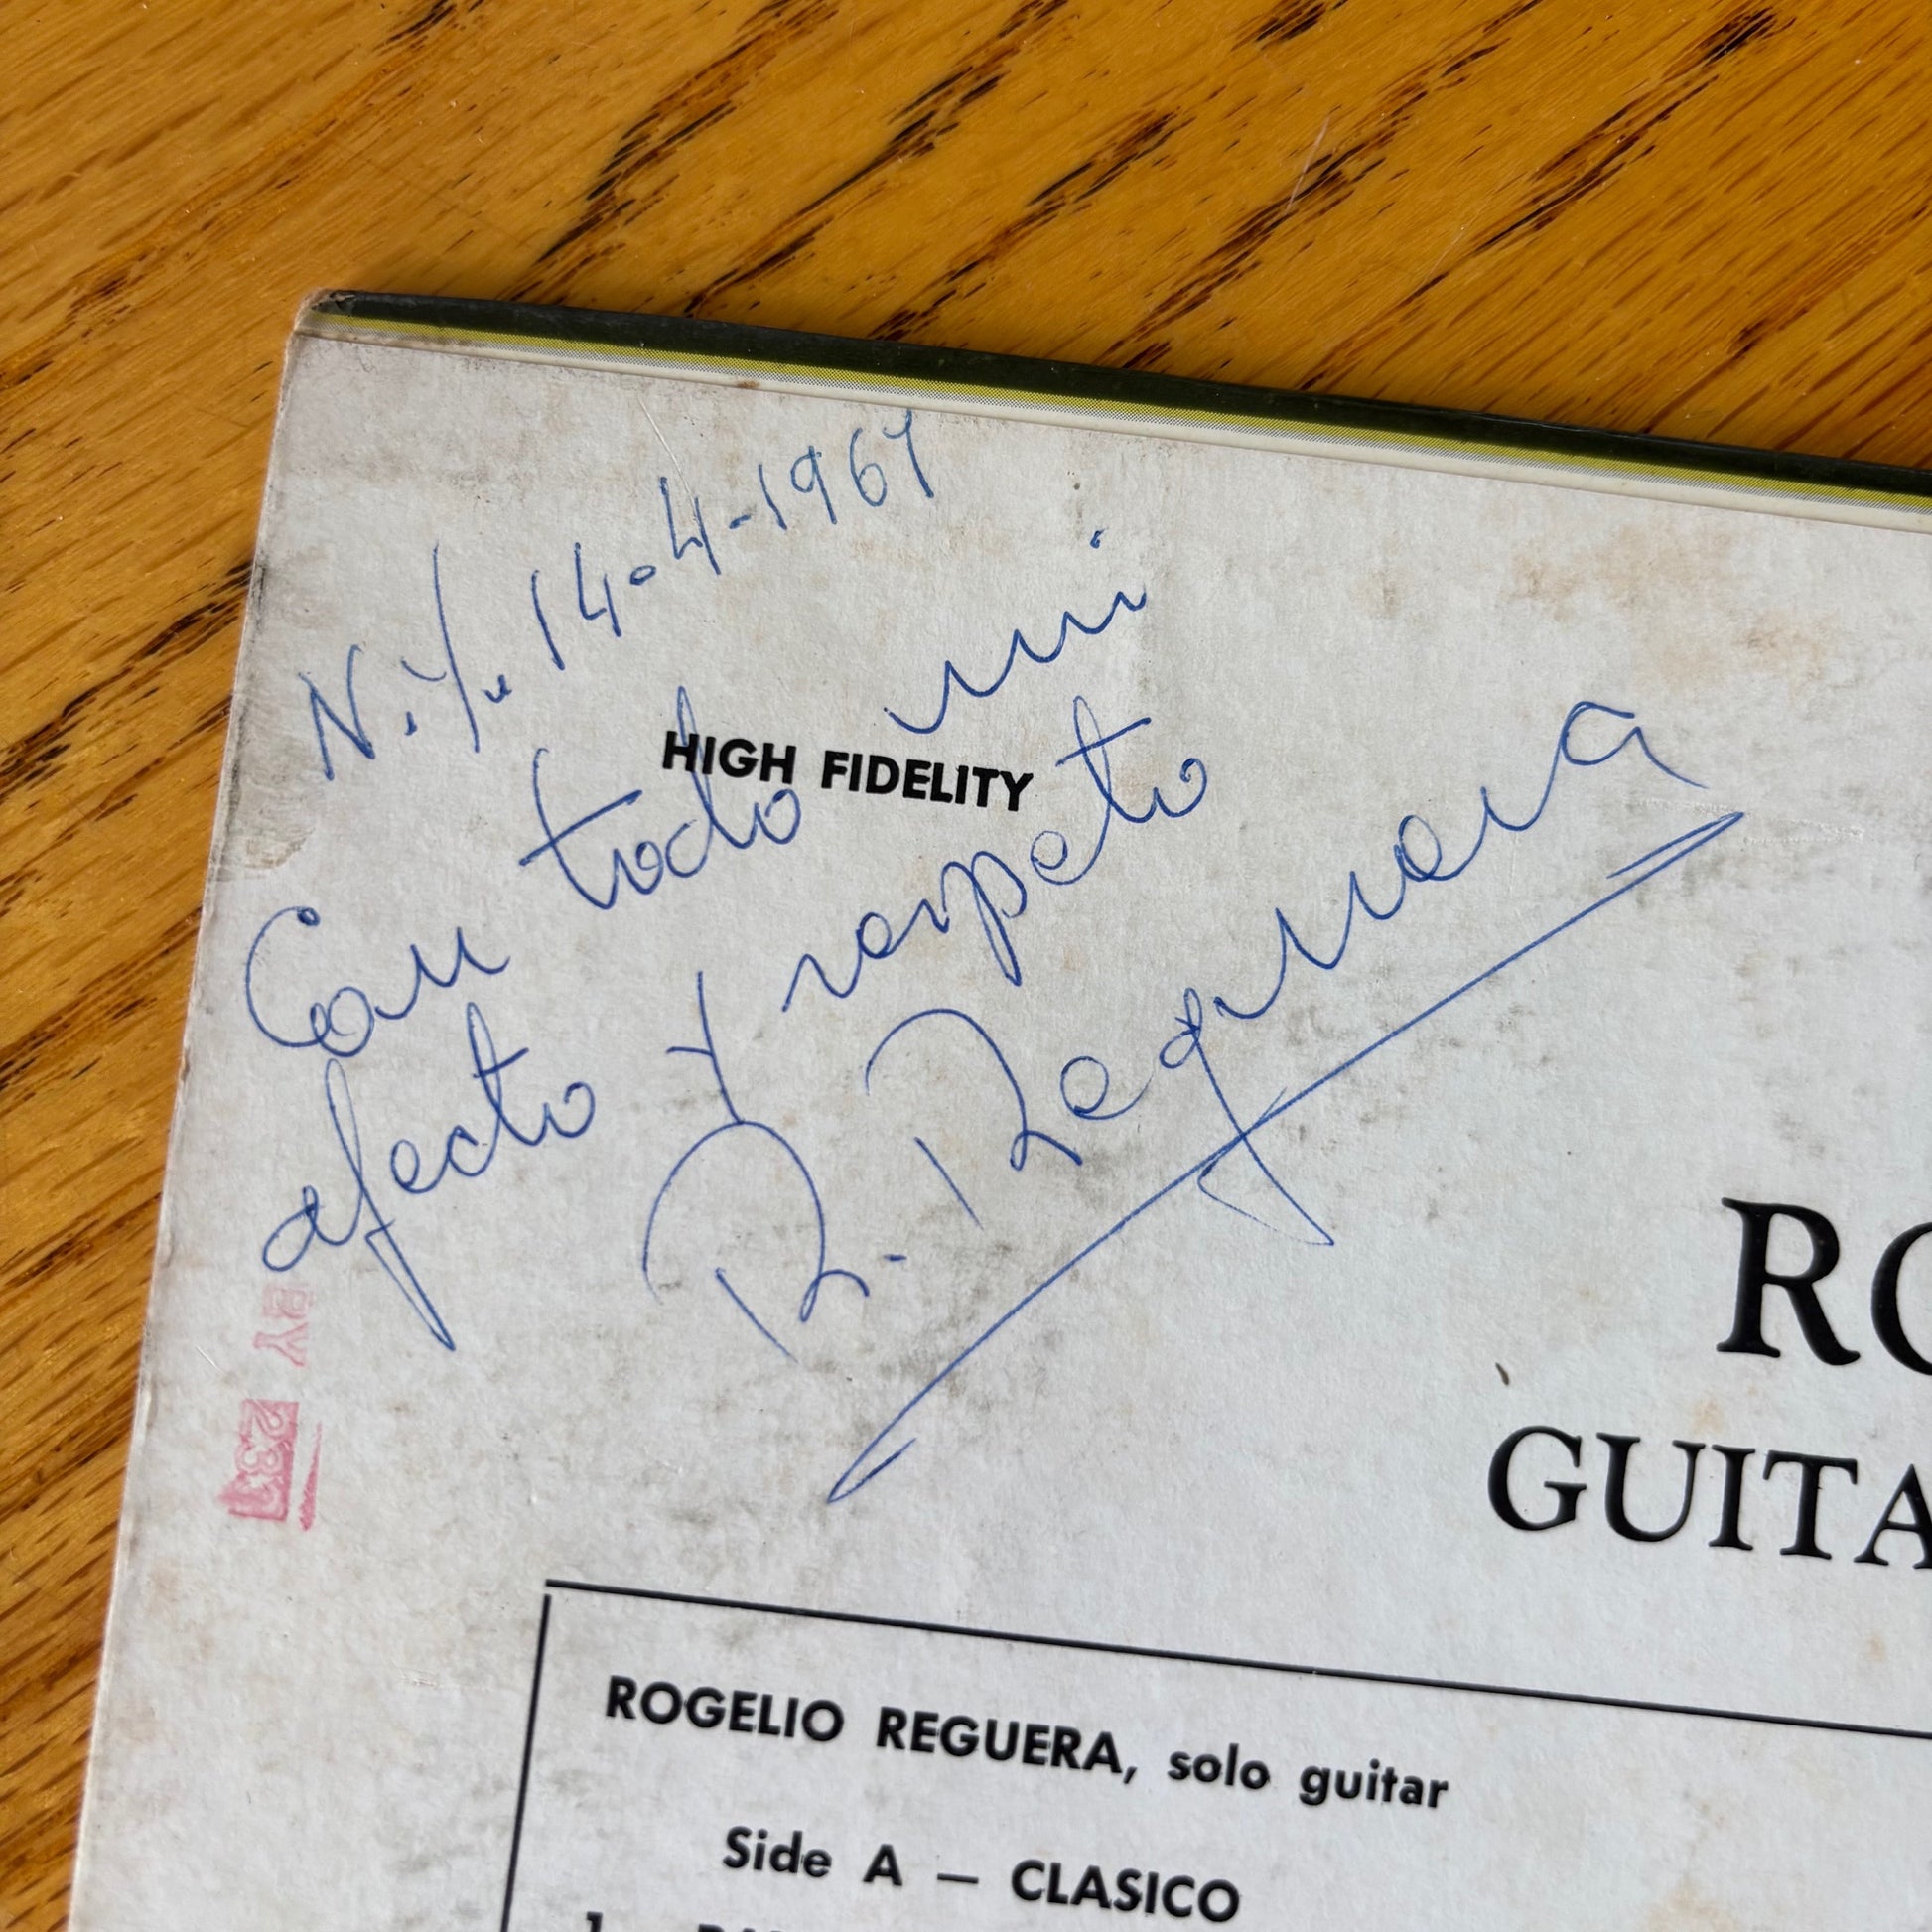 N.Y. 14-4-1967
HIGH FIDELITY
Con todo mi
afecto y respeto
R. Reguera
BY
RO
GUITA
ROGELIO REGUERA, solo guitar
Side A — CLASICO
1